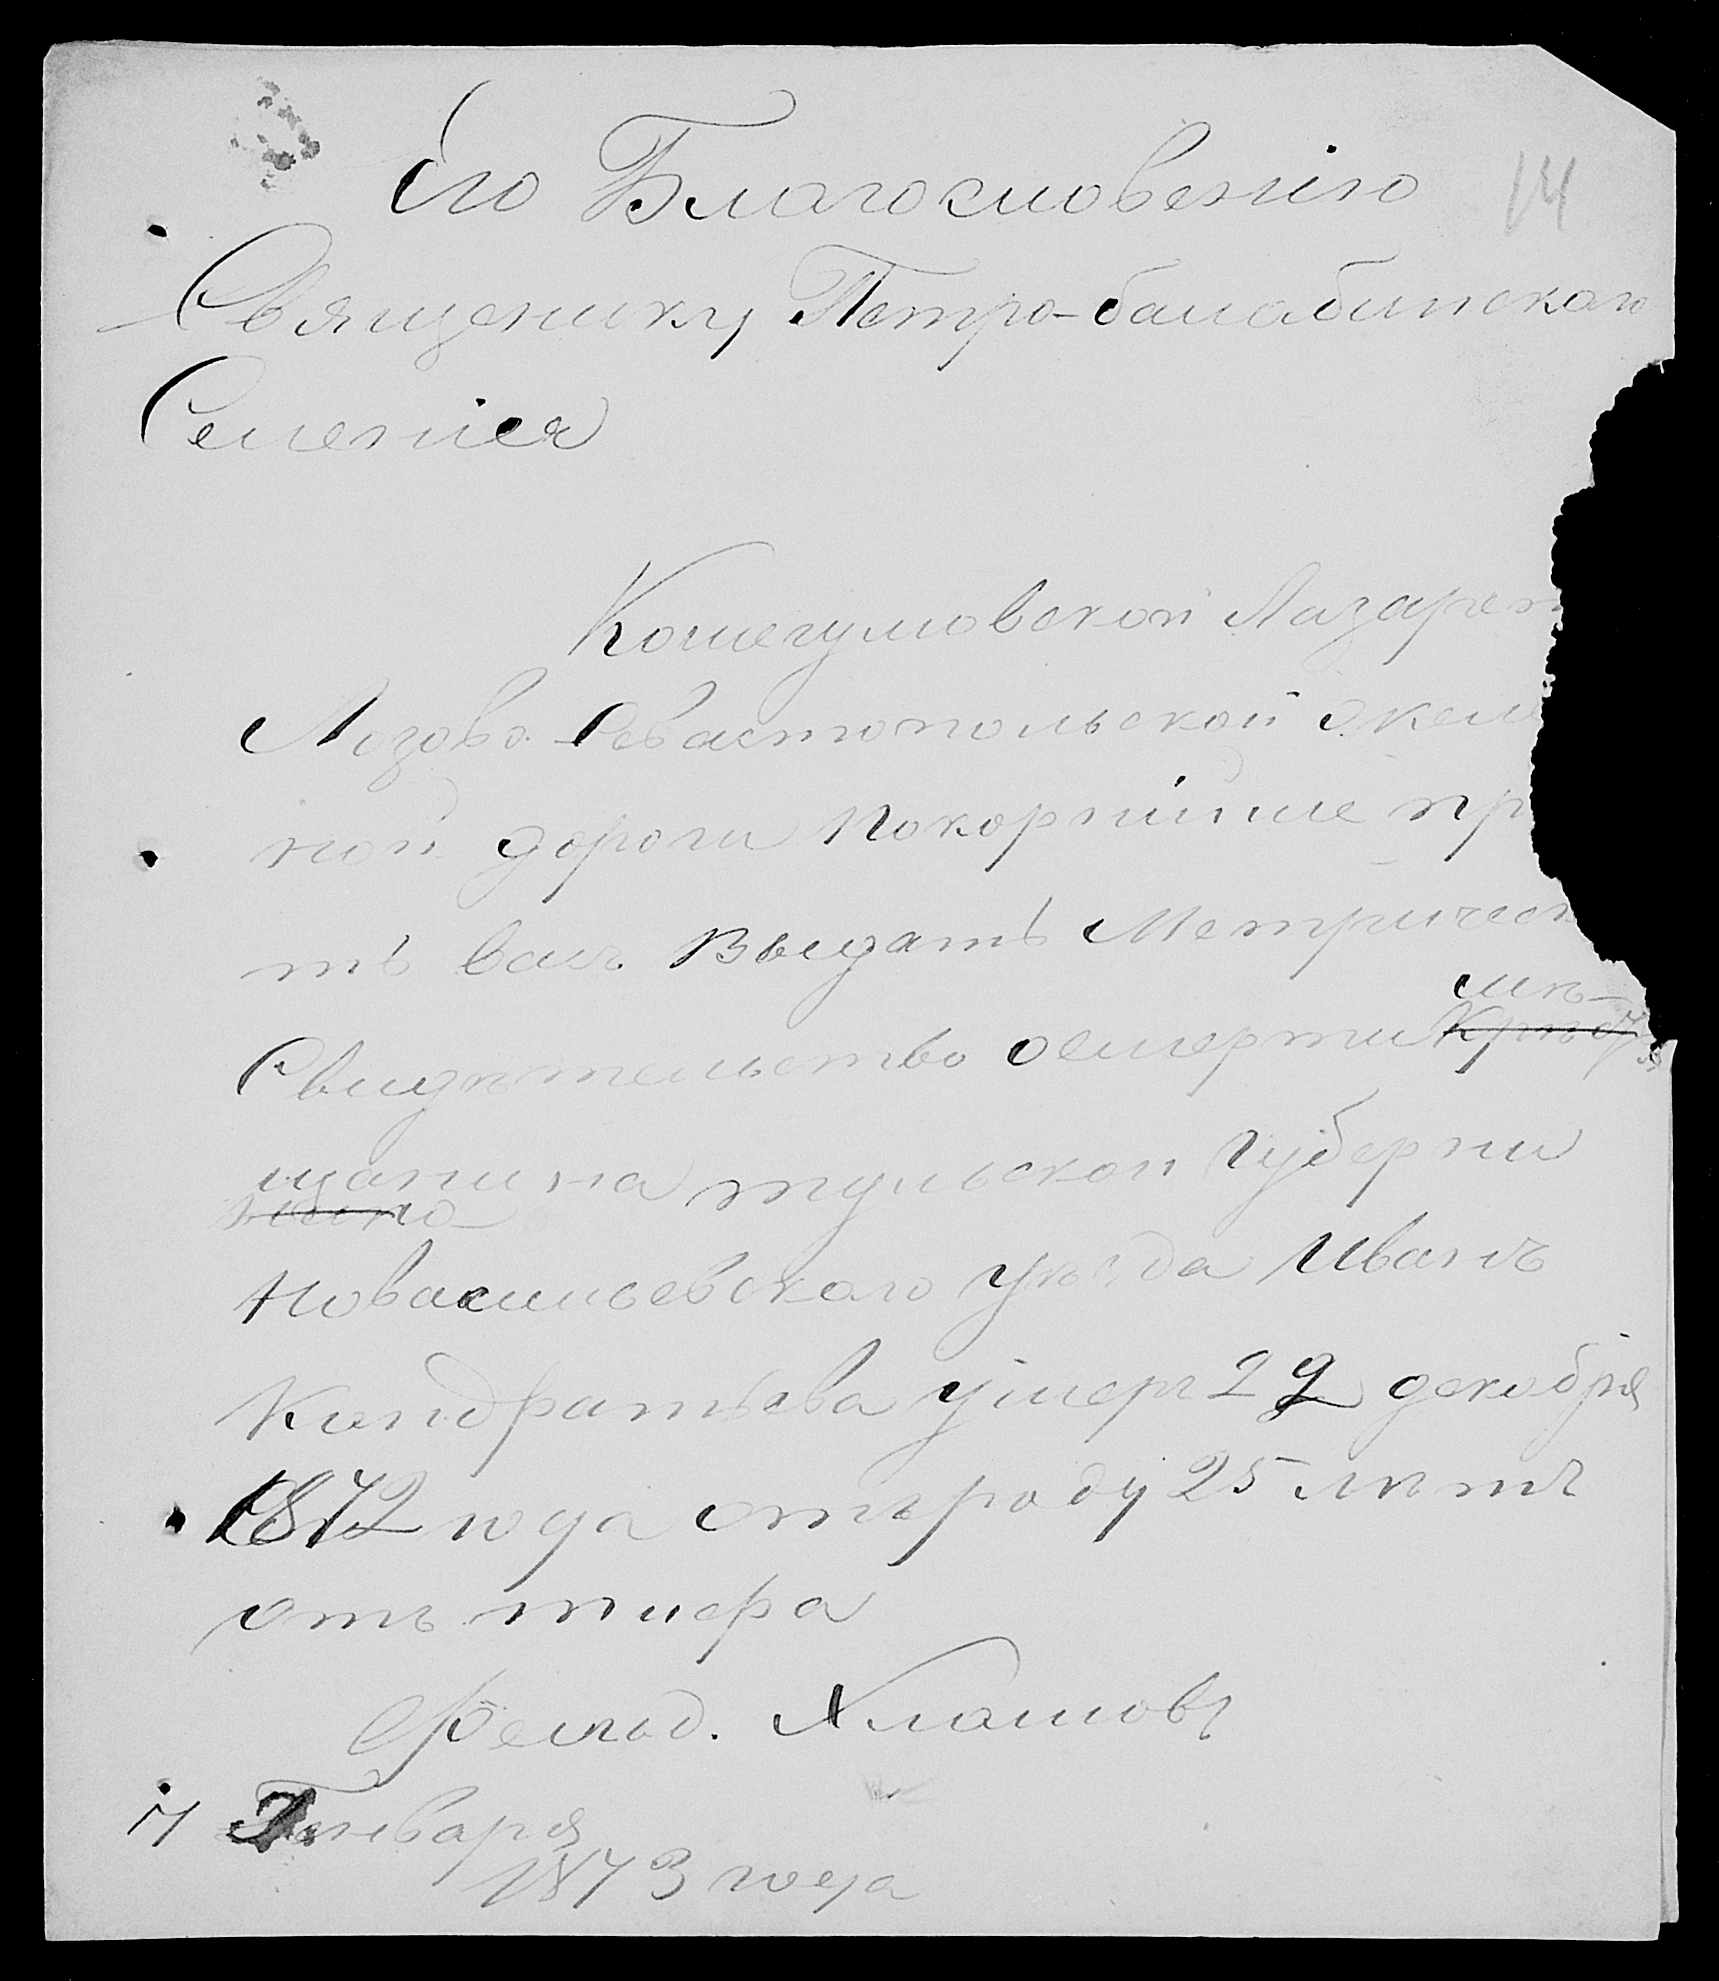 Его Благословенію
14
Священику Петро-балабинскаго
Селенія
Кошегумовской Лазарет
Лозово-Севастопольской желѣ
ной дороги покорнийше пр
тъ васъ выдать Метрическ
мѣ-
Свидѣтельство осмерти
щанина тульской губерни
Новасильевскаго уѣзда Иванъ
Кандратьева умеръ 29 декабря
1872 года отъ роду 25 лѣтъ
отъ тифа
Фельд. Хлашовъ
7 Генваря
1873 года